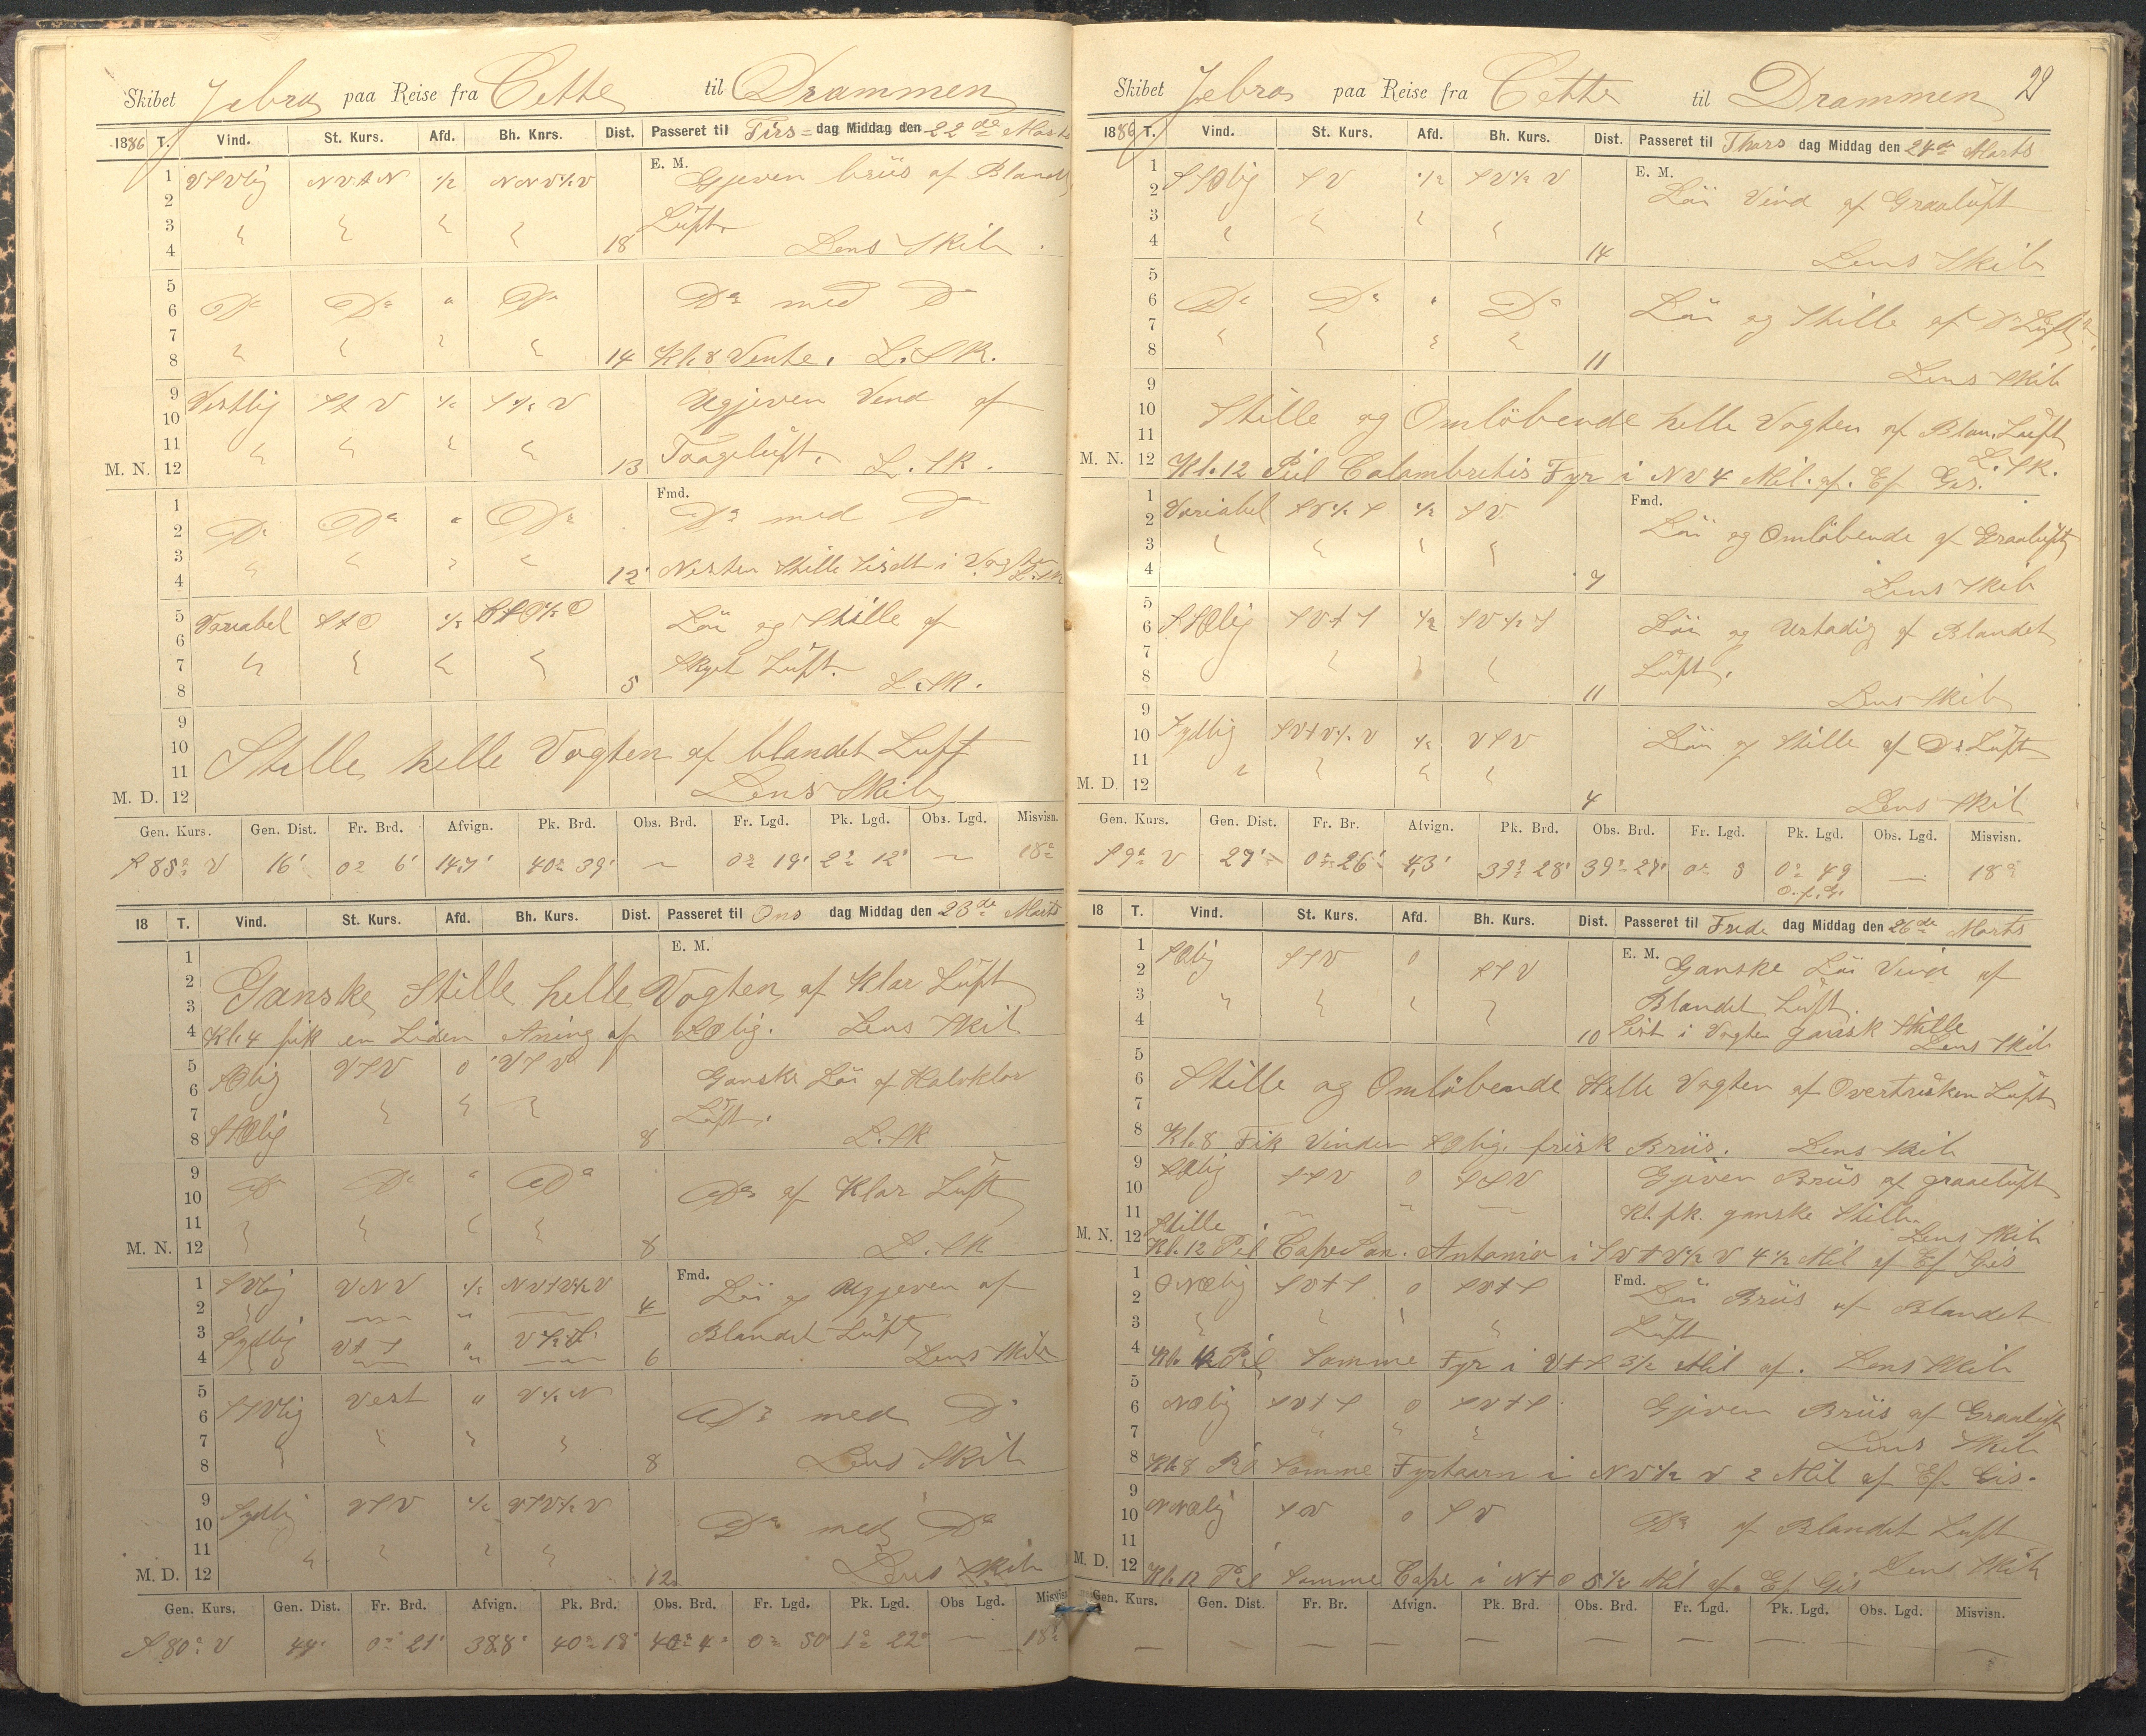 Skibet Zebra paa Reise fra Cette til Drammen
1886 T. Vind. St. Kurs. Afd. Bh. Knrs. Dist. Passeret til Tirs= dag Middag den 22de Marts
1 VSVlig NVtN ½ NNV½V E. M. Gjeven briis af Blandt
2
3 Lüft.
4 18 Lens Skib.
5
6 Do Do " Do Do med Do
7
8 14 Kl. 8 Vente. L. SK.
9 Vestlig StV ½ S½V Ugjeven Vind af
10
11 Taageluft.
M. N. 12 13 L. SK.
1 Fmd.
2 Do Do " Do Do med Do
3
4 12 Nesten Stille Sidst i Vagten L. SK
5 Variabel StO ½ Löi og Stille af
6
7 Skyet Lüft.
8 5 L. SK.
9
10 Stille helle Vagten af blandet Luft
11
M. D. 12 Lens Skib
Gen. Kurs. Gen. Dist. Fr. Brd. Afvign. Pk. Brd. Obs. Brd. Fr. Lgd. Pk. Lgd. Obs. Lgd. Misvisn.
S 85° V 16' 0° 6' 147' 40° 39' — 0° 19' 2° 12' — 18°
18 T. Vind. St. Kurs. Afd. Bh. Kurs. Dist. Passeret til Ons dag Middag den 23de Marts
1 E. M.
2 Ganske Stille helle Vagten af Klar Lüft
3
4 Kl. 4 fik en Liden Aning af SOlig. Lens Skib
5 SOlig VSV 0 VSV Ganske Löi af Halvklar
6
7 Lüft.
8 SSOlig 8 L. SK
9
10 Do Do " Do Do af Klar Lüft
11
M. N. 12 8 L. SK
1 SVlig VNV ½ NVtV½V Fmd. Löi og Ugjeven af
2 4
3 Sydlig VtS " Blandet Lüft
4 6 Lens Skib
5 SSVlig Vest " V½N
6 Do med Do
7
8 8 Lens Skib
9 Sydlig VSV ½ VSV½V
10 Do med Do
11
M. D. 12 12 Lens Skib
Gen. Kurs. Gen. Dist. Fr. Brd. Afvign. Pk. Brd. Obs. Brd. Fr. Lgd. Pk. Lgd. Obs Lgd. Misvisn.
S 80° V 44' 0° 21' 388' 40° 18' 40° 4' 0° 50' 1° 22' — 18°
Skibet Zebra paa Reise fra Cette til Drammen 29
1886 T. Vind. St. Kurs. Afd. Bh. Kurs. Dist. Passeret til Thors dag Middag den 24de Marts
1 SSOlig SV ½ SV½V E. M.
2 Löi Vind af Graaluft
3
4 14 Lens Skib
5
6 Do Do " Do Löi og Stille af Do Lüft
7
8 11 Lens Skib
9
10 Stille og Omlöbende helle Vagten af Blan. Lüft
11 L. SK.
M. N. 12 Kl. 12 Peil Colambretis Fyr i NV 4 Mil. af. Ef Gis.
1 Variabel SV½S ½ SV Fmd.
2 Löi og Omlöbende af Graaluft
3
4 7 Lens Skib
5
6 SSOlig SVtS ½ SV½S Löi og Ustadig af Blandet
7 Lüft.
8 11 Lens Skib
9
10 Sydlig SVtV½V ½ VSV Löi og Stille af Do Lüft
11
M. D. 12 4 Lens Skib
Gen. Kurs. Gen. Dist. Fr. Br. Afvign. Pk. Brd. Obs. Brd. Fr. Lgd. Pk. Lgd. Obs. Lgd. Misvisn.
S 9° V 27' 0° 26' 4,3' 39° 28' 39° 27' 0° 3 0° 49 — 18°
O. f. G.
18 T. Vind. St. Kurs. Afd. Bh. Kurs. Dist. Passeret til Frede dag Middag den 26de Marts
1 SOlig SSV 0 SSV E. M.
2 Ganske Löi Vind af
3 Blandet Lüft.
4 10 Sist i Vagten gansk Stille Lens Skib
5
6 Stille og Omlöbende Helle Vagten af Overtruken Lüft
7
8 Kl. 8 Fik Vinden SOlig. frisk Briis. Lens Skib
9 SOlig SSV 0 SSV Gjeven Briis af graaelüft
10
11 Kl. fk. ganske Stille.
Stille Lens Skib
M. N. 12 Kl. 12 Peil Cape San. Antonio i SVtV½V 4½ Mil af Ef Gis
1 ONOlig SVtS 0 SVtS Fmd. Löi Briis af Blandet
2
3 Lüft
4 Kl. 4 Peil Somme Fyr i VtS 3½ Mil af. Lens Skib
5
6 NOlig SVtS 0 SVtS Gjeven Briis af Graaluft
7 Lens Skib
8 Kl. 8 Peil Somme Fyrtaarn i NV½V 2 Mil af Ef Gis.
9
10 NNOlig SV 0 SV Do af Blandet Luft
11
M. D. 12 Kl. 12 Peil Somme Cape i NtO 5½ Mil af. Ef Gis Lens Skib
Gen. Kurs. Gen. Dist. Fr. Br. Afvign. Pk. Brd. Obs. Brd. Fr. Lgd. Pk. Lgd. Obs. Lgd. Misvisn.
— — — — — — — — — —